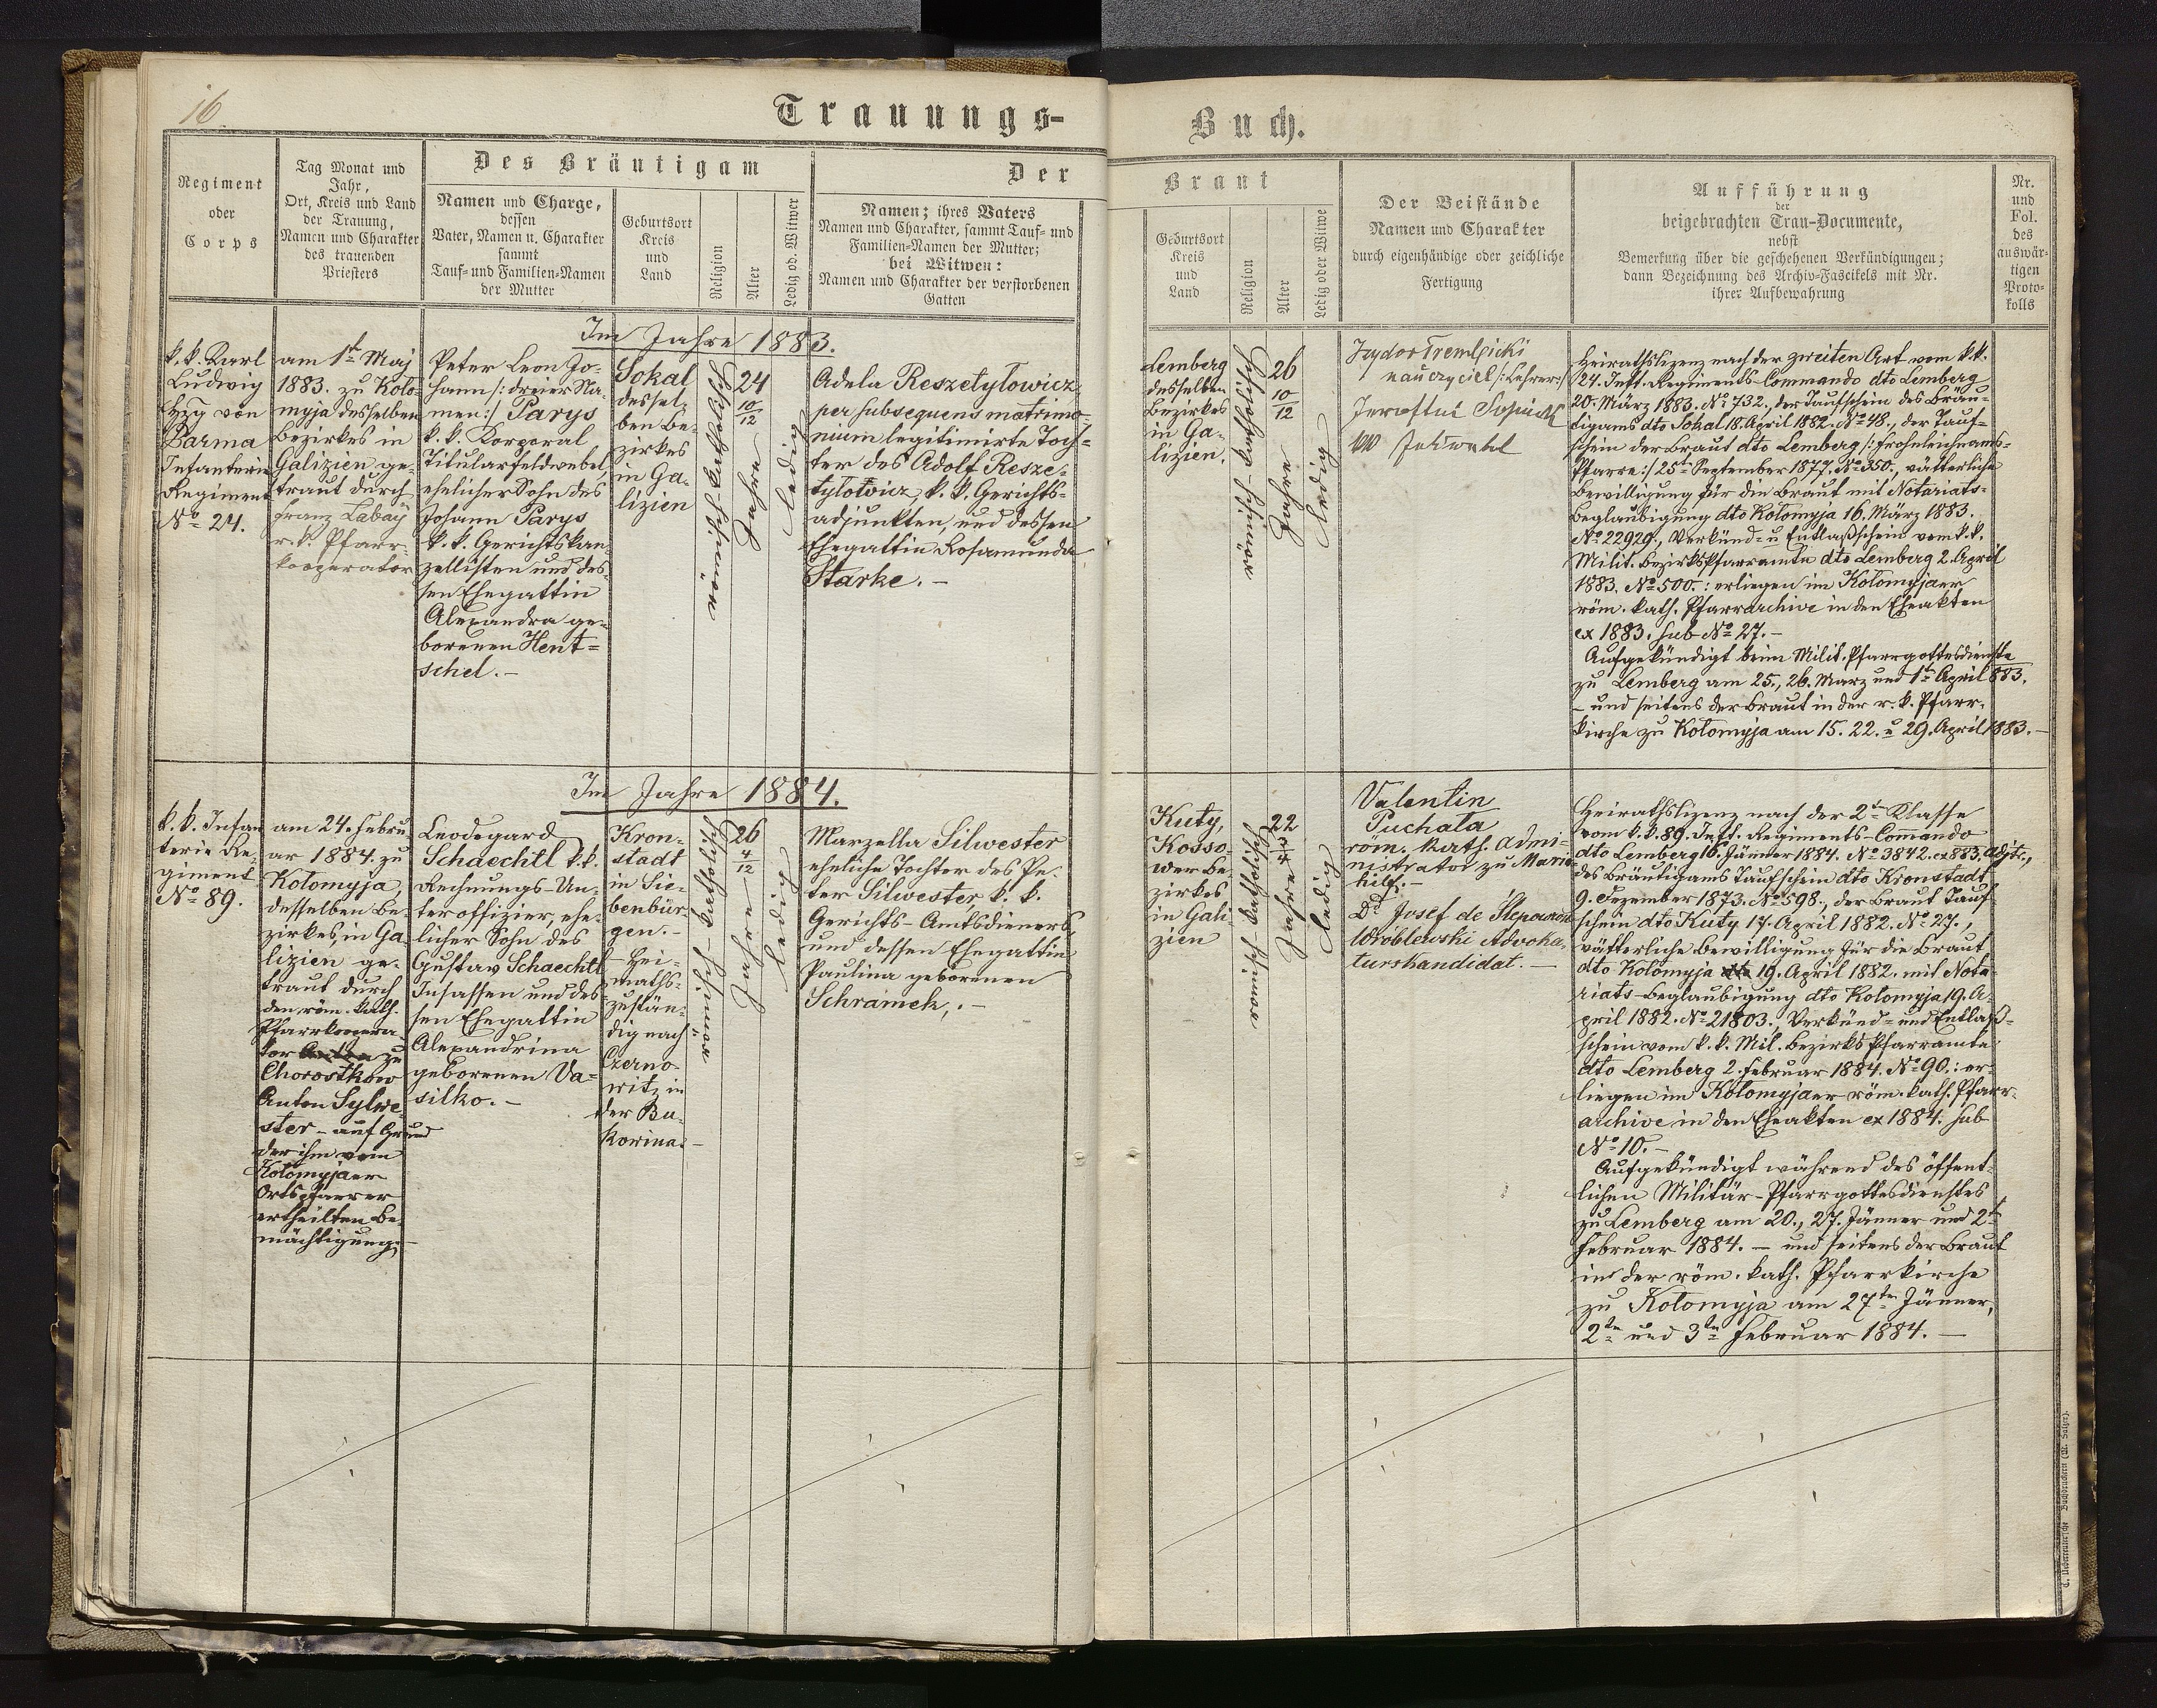 16
Trauungs-
Buch.
Regiment
oder
Corps
Tag Monat und
Jahr,
Ort, Kreis und Land
der Trauung,
Namen und Charakter
des trauenden
Priesters
Des Bräutigam
Namen und Charge,
dessen
Vater, Namen u. Charakter
sammt
Tauf- und Familien-Namen
der Mutter
Geburtsort
Kreis
und
Land
Religion
Alter
Ledig od. Witwer
Der
Namen; ihres Vaters
Namen und Charakter, sammt Tauf- und
Familien-Namen der Mutter;
bei Witwen:
Namen und Charakter der verstorbenen
Gatten
Braut
Geburtsort
Kreis
und
Land
Religion
Alter
Ledig oder Witwe
Der Beistände
Namen und Charakter
durch eigenhändige oder zeichliche
Fertigung
Aufführung
der
beigebrachten Trau-Documente,
nebst
Bemerkung über die geschehenen Verkündigungen;
dann Bezeichnung des Archiv-Fascikels mit Nr.
ihrer Aufbewahrung
Nr.
und
Fol.
des
auswär-
tigen
Proto-
kolls
Im Jahre 1883.
k. k. Karl
Ludwig
Hzg von
Parma
Infanterie
Regiment
No 24.
am 1t Maj
1883. zu Kolo-
myja desselben
Bezirkes in
Galizien ge-
traut durch
Franz Labaÿ
r. k. Pfarr-
kooperator
Peter Leon Jo-
hann /: dreier Na-
men :/ Parys
k. k. Korporal
Titularfeldwebel,
ehelicher Sohn des
Johann Parys
k. k. Gerichtskan-
zellisten und des-
sen Ehegattin
Alexandra ge-
borenen Hent=
schel. –
Sokal
dessel-
ben Be-
zirkes
in Ga-
lizien
römisch-katholisch
24
10/12
Jahre
ledig
Adela Reszetylowicz
per subsequens matrimo-
nium legitimirte Toch-
ter des Adolf Resze-
tylowicz, k. k. Gerichts-
adjunkten, und dessen
Ehegattin Rosamunda
Starke. –
Lemberg
desselben
Bezirkes
in Ga-
lizien.
römisch-katholisch
26
10/12
Jahre
ledig
nauczyciel /: Lehrer :/
Heirathslizenz nach der zweiten Art vom k. k.
24. Inft. Regiments-Commando dto Lemberg
20. März 1883. No 732., der Taufschein des Bräu-
tigams dto Sokal 18. April 1882. No 48., der Tauf-
schein der Braut dto Lemberg /: Frohnleichnams-
Pfarre :/ 25tn September 1877. No 350., väterliche
Bewilligung für die Braut mit Notariats-
Beglaubigung dto Kolomyja 16. März 1883.
No 22929., Verkünd- u Entlaßschein vom k. k.
Milit. Bezirkspfarramte dto Lemberg 2. April
1883. No 500.: erliegen im Kolomyjaer
röm. kath. Pfarrarchive in den Eheakten
ex 1883. sub No 27. –
Aufgekündigt beim Milit. Pfarrgottesdienste
zu Lemberg am 25., 26. Marz und 1tn April 883.
– und seitens der Braut in der r. k. Pfarr-
kirche zu Kolomyja am 15. 22. u 29. April 1883. –
Im Jahre 1884.
k. k. Infan
terie Re-
giment
No 89.
am 24. Febru-
ar 1884. zu
Kolomyja,
desselben Be-
zirkes, in Ga-
lizien ge-
traut durch
den röm. kath.
Pfarrkoopera-
tor zu
Chorostkow
Anton Sylwe-
ster – auf Grund
der ihm vom
Kolomyjaer
Ortspfarrer
ertheilten Be-
mächtigung –
Leodegard
Schaechtl k. k.
Rechnungs-Un-
teroffizier, ehe-
licher Sohn des
Gustav Schaechtl
Insassen und des-
sen Ehegattin
Alexandrina
geborenen Va=
silko. –
Kron-
stadt
in Sie-
benbür-
gen. –
– Hei-
maths-
zustän-
dig nach
Czerno-
witz in
der Bu-
kowina. –
römisch-katholisch
26
4/12
Jahre
ledig
Marzella Silwester
eheliche Tochter des Pe-
ter Silwester k. k.
Gerichts-Amtsdieners,
und dessen Ehegattin
Paulina geborenen
Schramek, –
Kuty,
Kosso-
wer Be-
zirkes
in Gali
zien
römisch katholisch
22
Jahre
ledig
Valentin
Puchała
röm. kath. Admi-
nistrator zu Maria-
hilf. –
Josef de
Wróblewski Advoka-
turskandidat. –
Heirathslizenz nach der 2tn Klasse
vom k. k. 89. Inft. Regiments-Commando
dto Lemberg 16. Jänner 1884. No 3842. ex 883. Adjt.,
des Bräutigams Taufschein dto Kronstadt
9. Dezember 1873. No 598., der Braut Tauf-
schein dto Kuty 17. April 1882. No 27.,
väterliche Bewilligung für die Braut
dto Kolomyja dto 19. April 1882. mit Nota-
riats-Beglaubigung dto Kolomyja 19. A-
pril 1882. No 21803., Verkünd- und Entlaß-
schein vom k. k. Mil. Bezirks Pfarramte
dto Lemberg 2. Februar 1884. No 90.: er-
liegen im Kolomyjaer röm. kath. Pfarr-
archive in den Eheakten ex 1884. sub
No 10. –
Aufgekündigt während des öffent-
lichen Militär-Pfarrgottesdienstes
zu Lemberg am 20., 27. Jänner und 2tn
Februar 1884. – und seitens der Braut
in der röm. kath. Pfarrkirche
zu Kolomyja am 27tn Jänner,
2tn und 3tn Februar 1884. –
C. Ueberreuter'sche Buchdruckerei (M. Salzer).